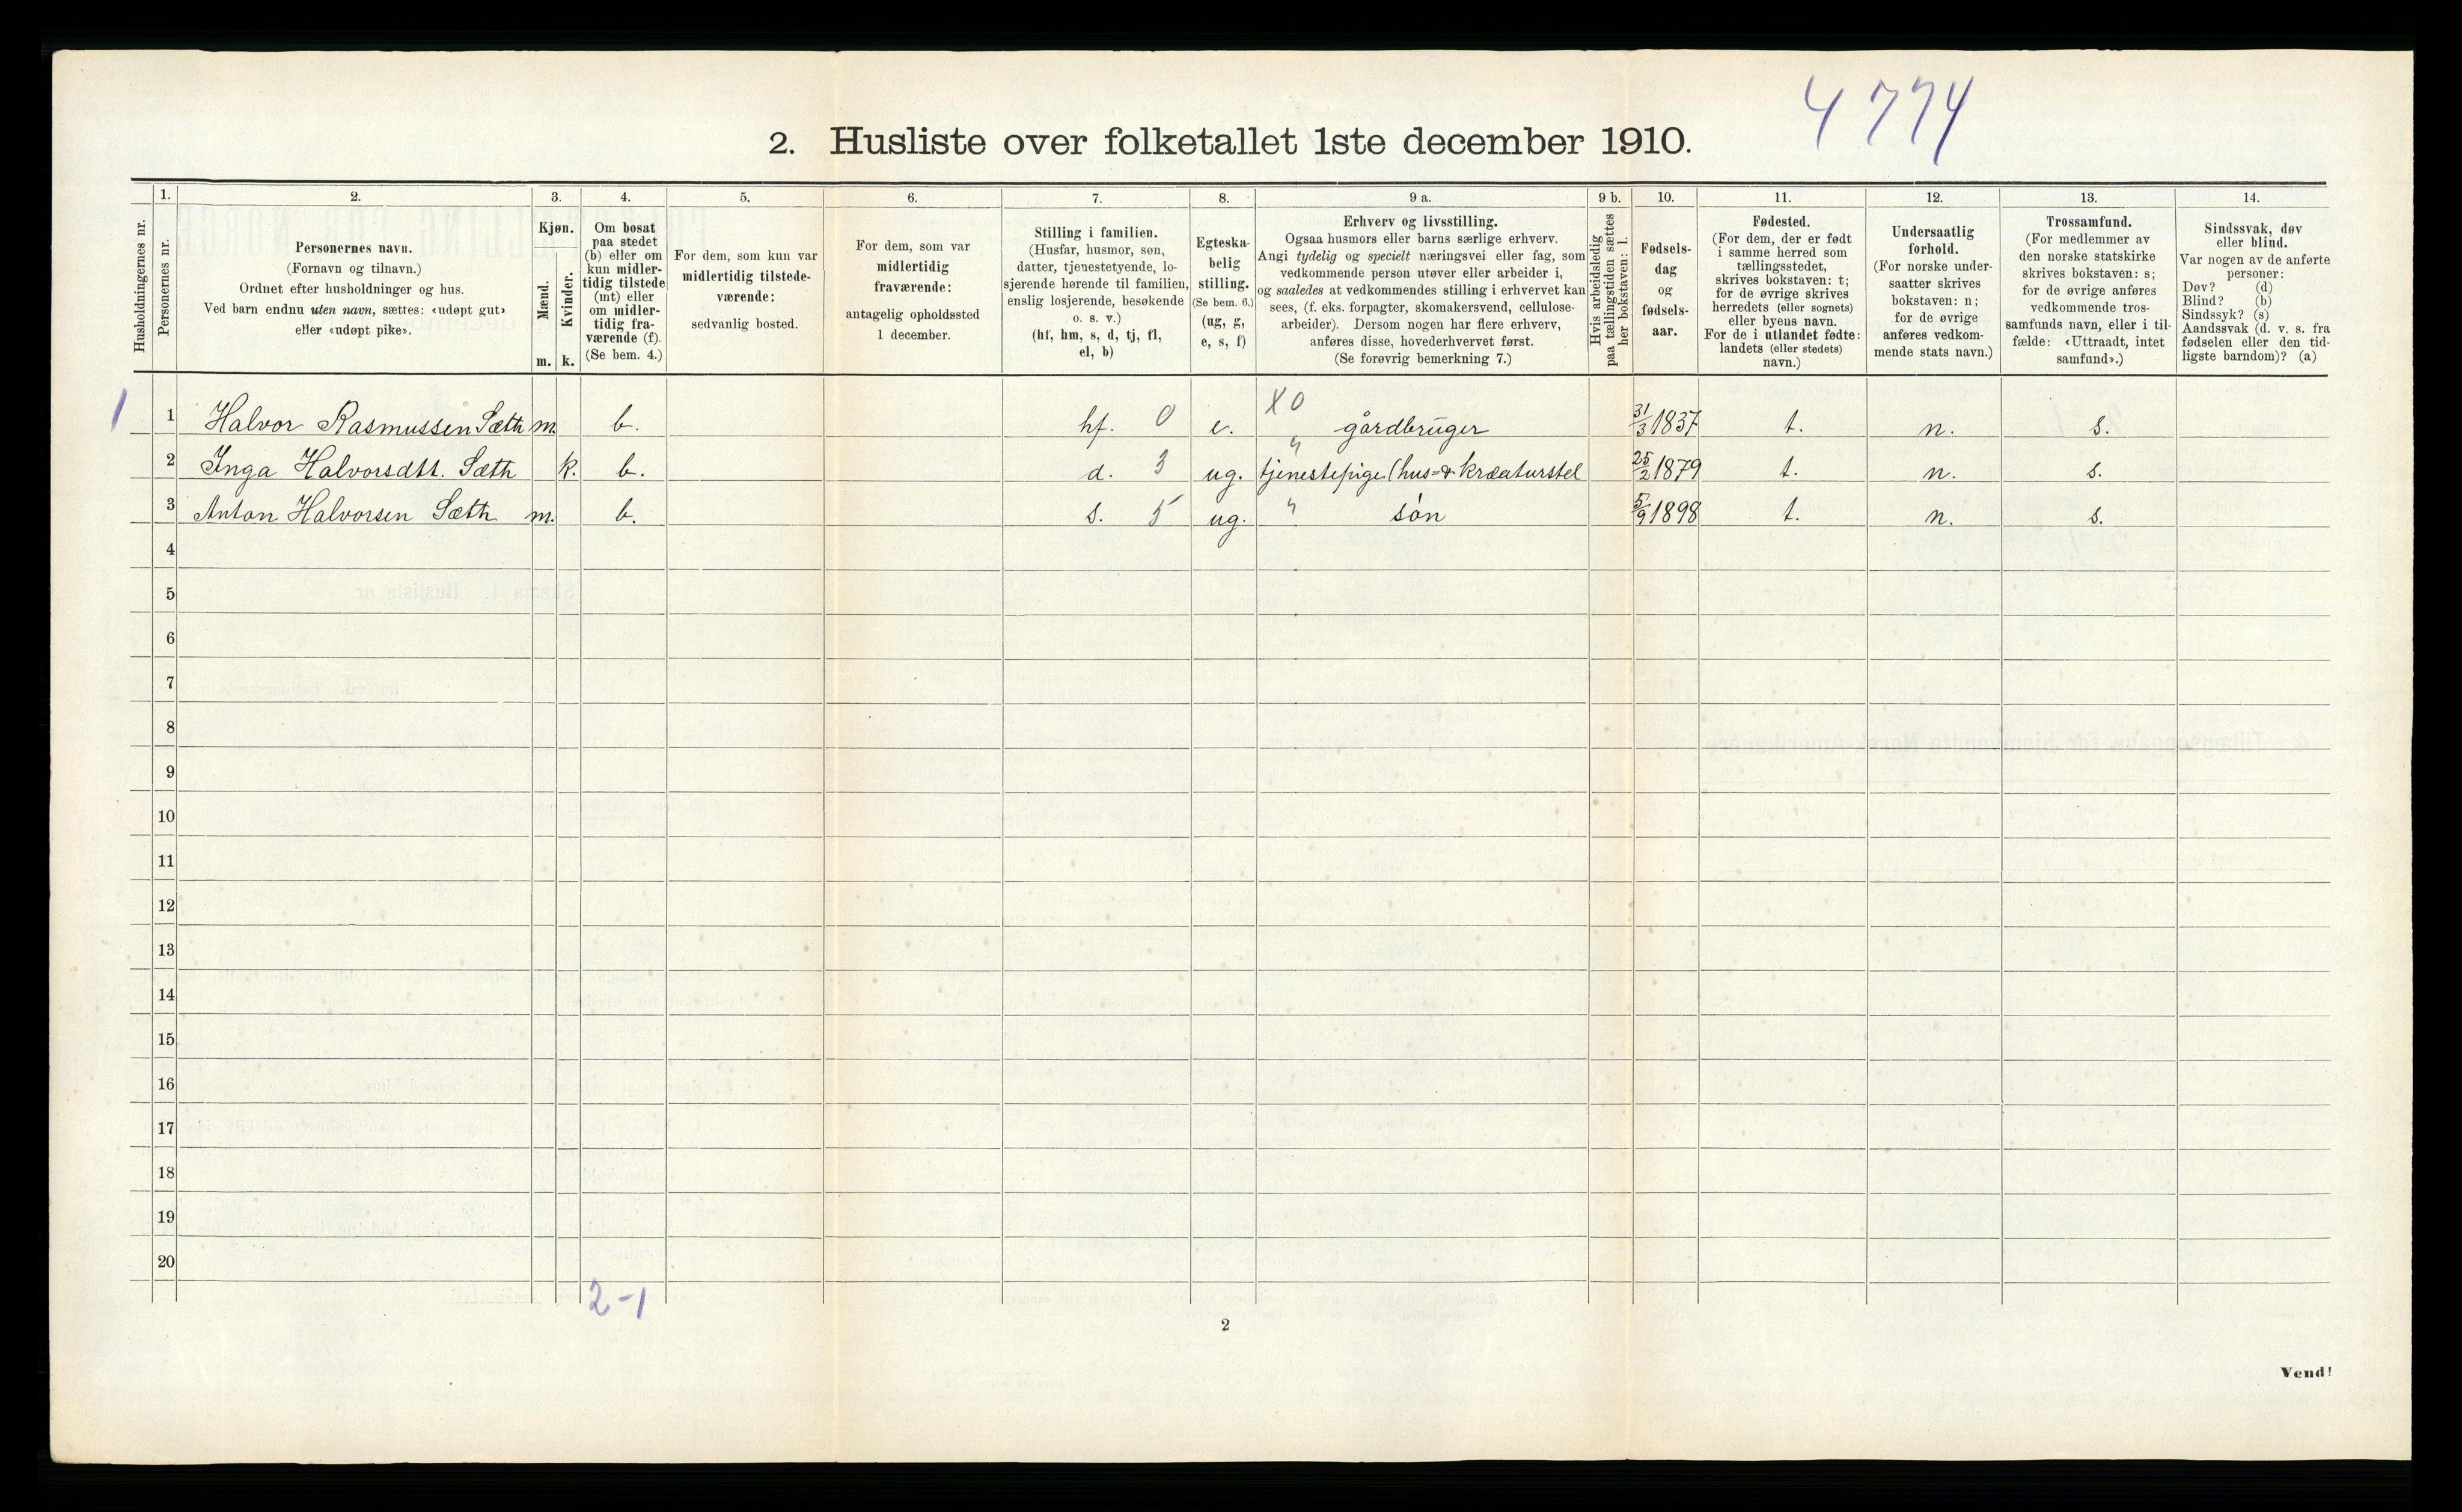 4774
2. Husliste over folketallet 1ste december 1910.
Husholdningernes nr.
1.
Personernes nr.
2.
Personernes navn.
(Fornavn og tilnavn.)
Ordnet efter husholdninger og hus.
Ved barn endnu uten navn, sættes: «udøpt gut»
eller «udøpt pike».
3.
Kjøn.
Mænd.
Kvinder.
m. k.
4.
Om bosat
paa stedet
(b) eller om
kun midler-
tidig tilstede
(mt) eller
om midler-
tidig fra-
værende (f).
(Se bem. 4.)
5.
For dem, som kun var
midlertidig tilstede-
værende:
sedvanlig bosted.
6.
For dem, som var
midlertidig
fraværende:
antagelig opholdssted
1 december.
7.
Stilling i familien.
(Husfar, husmor, søn,
datter, tjenestetyende, lo-
sjerende hørende til familien,
enslig losjerende, besøkende
o. s. v.)
(hf, hm, s, d, tj, fl,
el, b)
8.
Egteska-
belig
stilling.
(Se bem. 6.)
(ug, g,
e, s, f)
9 a.
Erhverv og livsstilling.
Ogsaa husmors eller barns særlige erhverv.
Angi tydelig og specielt næringsvei eller fag, som
vedkommende person utøver eller arbeider i,
og saaledes at vedkommendes stilling i erhvervet kan
sees, (f. eks. forpagter, skomakersvend, cellulose-
arbeider). Dersom nogen har flere erhverv,
anføres disse, hovederhvervet først.
(Se forøvrig bemerkning 7.)
9 b.
Hvis arbeidsledig
paa tællingstiden sættes
her bokstaven: l.
10.
Fødsels-
dag
og
fødsels-
aar.
11.
Fødested.
(For dem, der er født
i samme herred som
tællingsstedet,
skrives bokstaven: t;
for de øvrige skrives
herredets (eller sognets)
eller byens navn.
For de i utlandet fødte:
landets (eller stedets)
navn.)
12.
Undersaatlig
forhold.
(For norske under-
saatter skrives
bokstaven: n;
for de øvrige
anføres vedkom-
mende stats navn.)
13.
Trossamfund.
(For medlemmer av
den norske statskirke
skrives bokstaven: s;
for de øvrige anføres
vedkommende tros-
samfunds navn, eller i til-
fælde: «Uttraadt, intet
samfund».)
14.
Sindssvak, døv
eller blind.
Var nogen av de anførte
personer:
Døv? (d)
Blind? (b)
Sindssyk? (s)
Aandssvak (d. v. s. fra
fødselen eller den tid-
ligste barndom)? (a)
1 1 Halvor Rasmussen Sæth m. b. hf. 0 e. X0 gårdbruger 31/3 1837 t. n. s.
2 Inga Halvorsdtt. Sæth k. b. d. 3 ug. " tjenestepige (hus- & kræaturstel 25/2 1879 t. n. s.
3 Anton Halvorsen Sæth m. b. s. 5 ug. " søn 5/9 1898 t. n. s.
4
5
6
7
8
9
10
11
12
13
14
15
16
17
18
19
20
2-1
2
Vend!